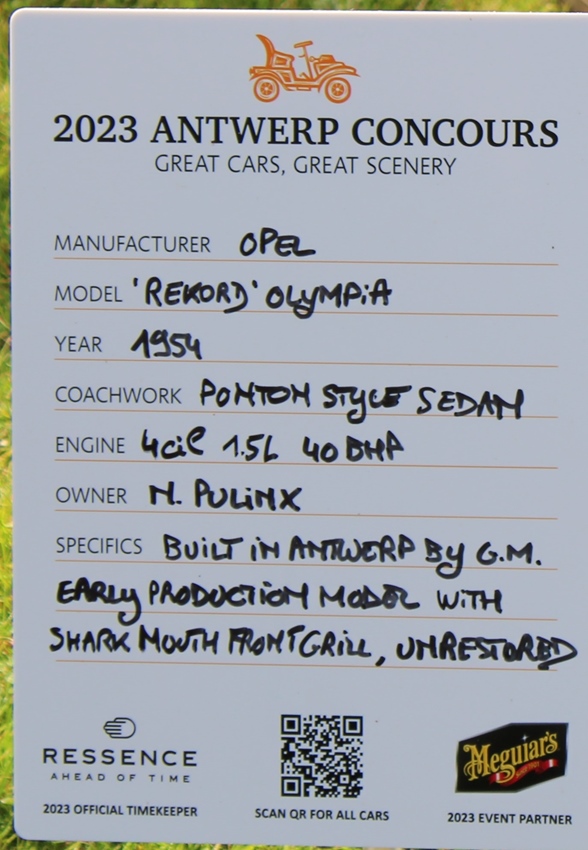 2023 ANTWERP CONCOURS
GREAT CARS, GREAT SCENERY
MANUFACTURER OPEL
MODEL 'REKORD' OLYMPiA
YEAR 1954
COACHWORK PONTON STYLE SEDAN
ENGINE 4cil 1.5L 40 BHP
OWNER N. PULiNX
SPECIFICS BUILT iN ANTWERP By G.M.
EARLy PRODUCTiON MODEL WiTH
SHARK MOUTH FRONTGRiLL, UNRESTORED
RESSENCE
AHEAD OF TIME
2023 OFFICIAL TIMEKEEPER
SCAN QR FOR ALL CARS
Meguiar's
2023 EVENT PARTNER